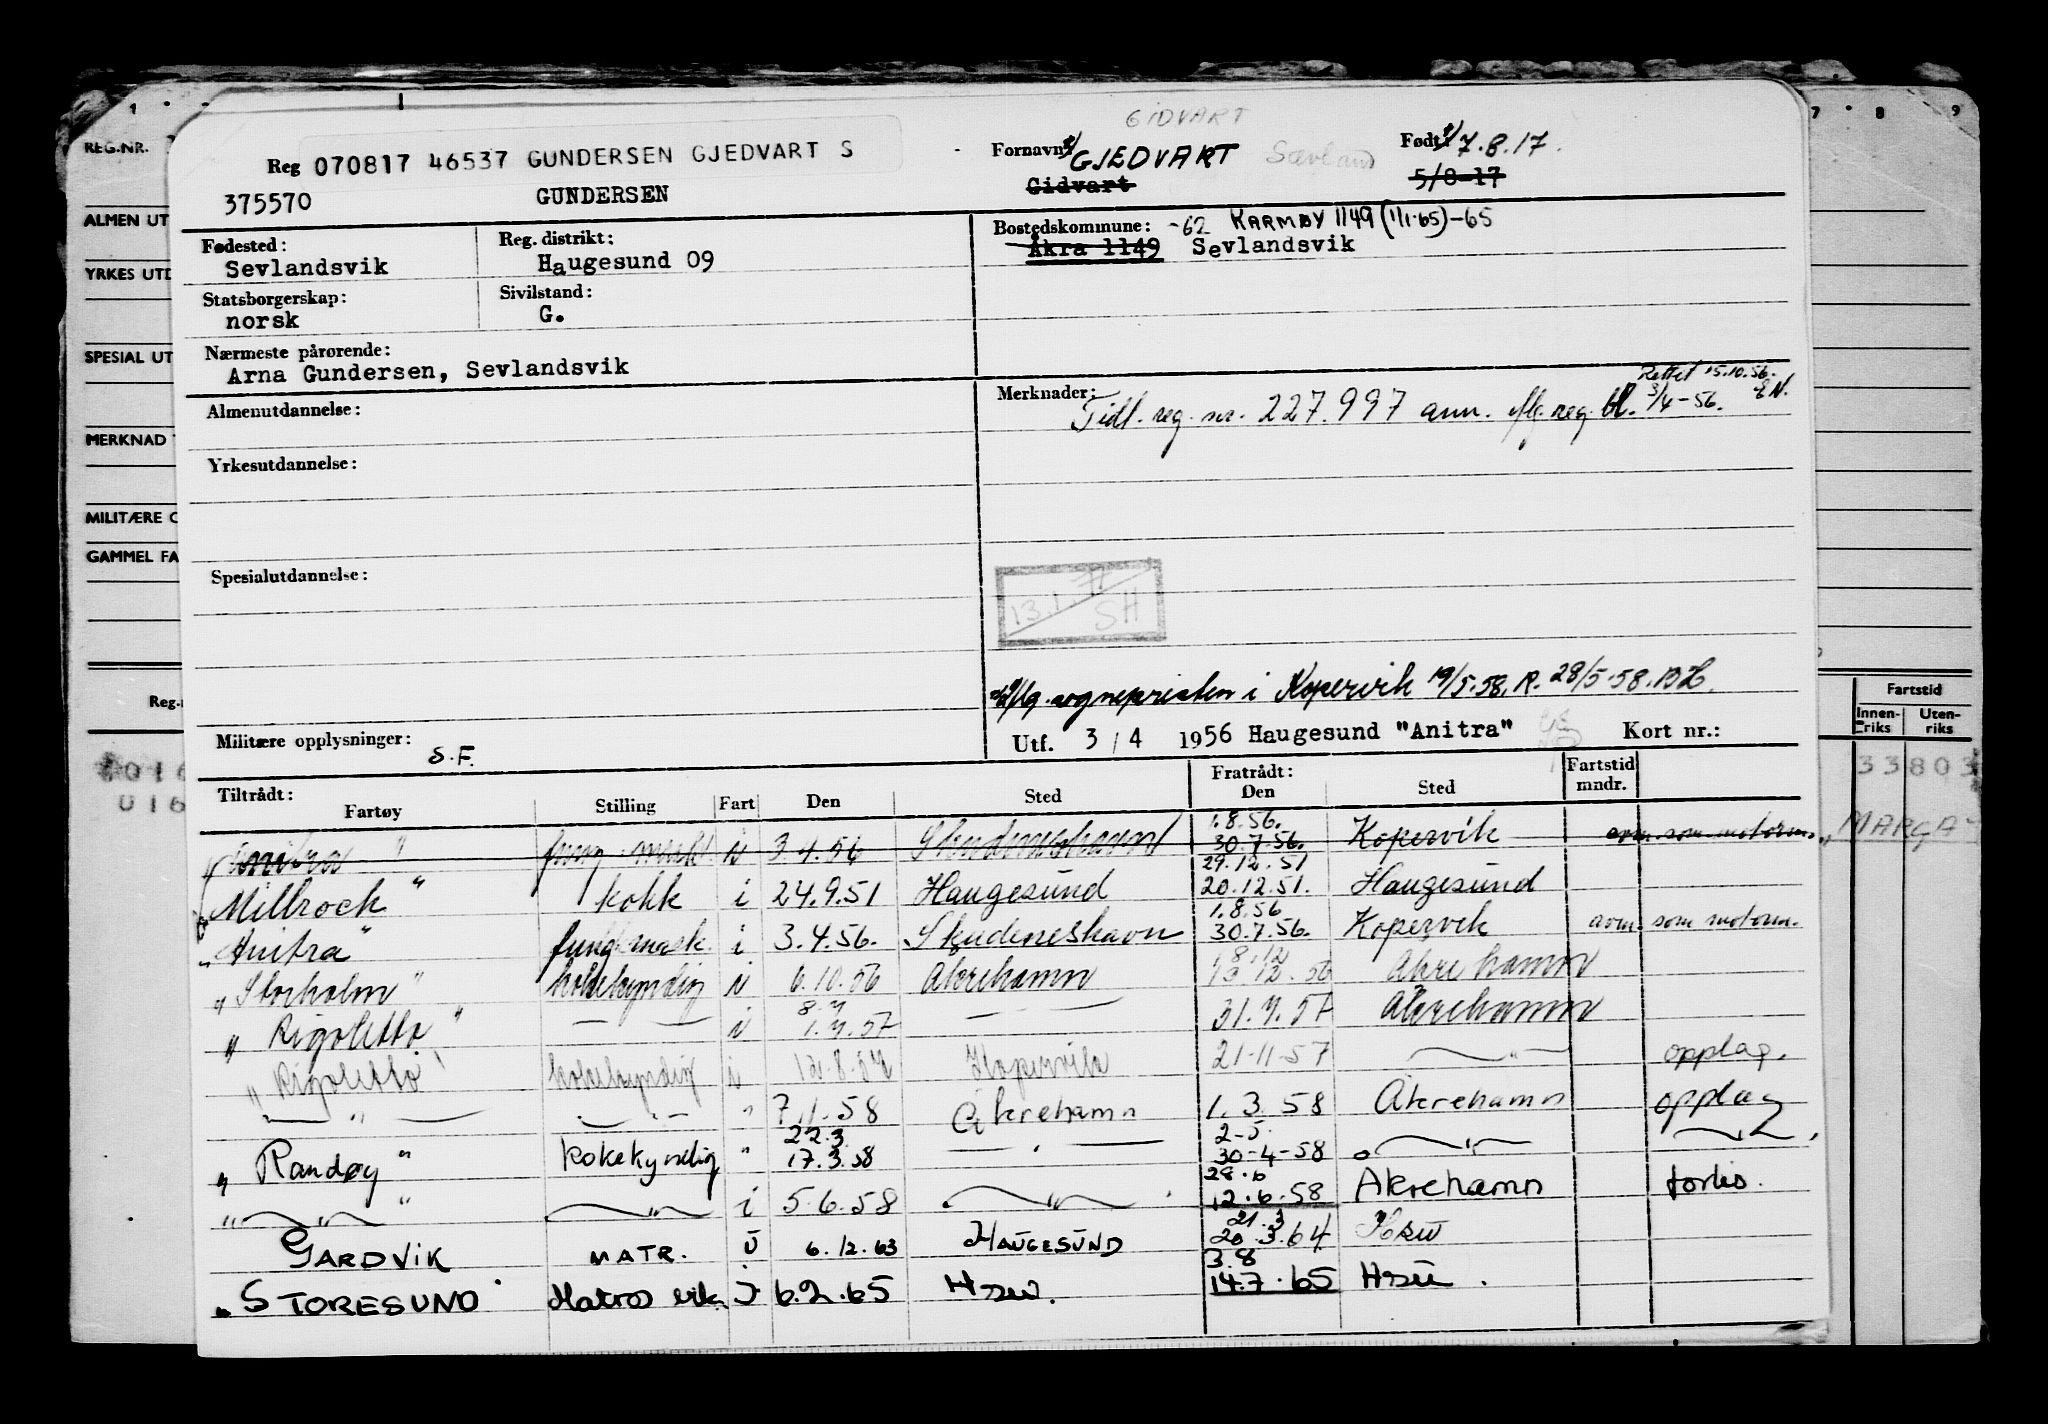 1 7 8 9
REG.NR.
ALMEN UT
YRKES UTD
SPESIAL UT
MERKNAD
MILITÆRE O
GAMMEL FA
Reg.
GIDVART
Reg 070817 46537 GUNDERSEN GJEDVART S
Fornavn: GJEDVART Sævland
Født: 7.8.17.
375570 GUNDERSEN
Gidvart 5/8-17
Fødested: Reg. distrikt: Bostedskommune: -62 KARMØY 1149 (1/1-65) -65
Sevlandsvik Haugesund 09 Åkra 1149 Sevlandsvik
Statsborgerskap: Sivilstand:
norsk G.
Nærmeste pårørende:
Arna Gundersen, Sevlandsvik
Rettet 15.10.56. EN.
Almenutdannelse: Merknader: Tidl. reg. nr. 227.997 ann. iflg. reg. bl. 3/4-56.
Yrkesutdannelse:
Spesialutdannelse:
13.1.72 SH
iflg. sognepresten i Kopervik 19/5.58. R. 28/5-58. BH.
Militære opplysninger: S.F. Utf. 3/4 1956 Haugesund "Anitra" Kort nr.:
Fartstid
Innenriks Utenriks
33803
Tiltrådt: Fratrådt: Fartstid mndr.
Fartøy Stilling Fart Den Sted Den Sted
"Anitra" fung. mask. i 3.4.56 Skudeneshavn 1.8.56. 30.7.56. Kopervik avm. som motorm.
"Millrock" kokk i 24.9.51 Haugesund 29.12.51 20.12.51. Haugesund
"Anitra" fung. mask. i 3.4.56. Skudeneshavn 1.8.56 30.7.56. Kopervik avm. som motorm.
"Storholm" kokekyndig i 6.10.56 Akrehamn 18.12 15.12.56 Akrehamn
"Rigoletto" — " — i 8.7 1.7.57 — " — 31.7.57 Akrehamn
"Rigoletto" kokekyndig i 12.8.57 Kopervik 21-11-57 — " — opplag.
— " — — " — " 7.1.58 Akrehamn 1.3.58 Akrehamn opplag
"Randøy" kokekyndig " 22.3. 17.3.58 — " — 2-5. 30-4-58 — " — — " —
" — " — " — " — i 5.6.58 — " — 28.6 12.6.58 Akrehamn forlis.
GARDVIK MATR. U 6.12.63 HAUGESUND 21.3 20.3.64 Hsu
"STORESUND" Matros i 6.2.65 Hsu. 3.8 14.7.65 Hsu.